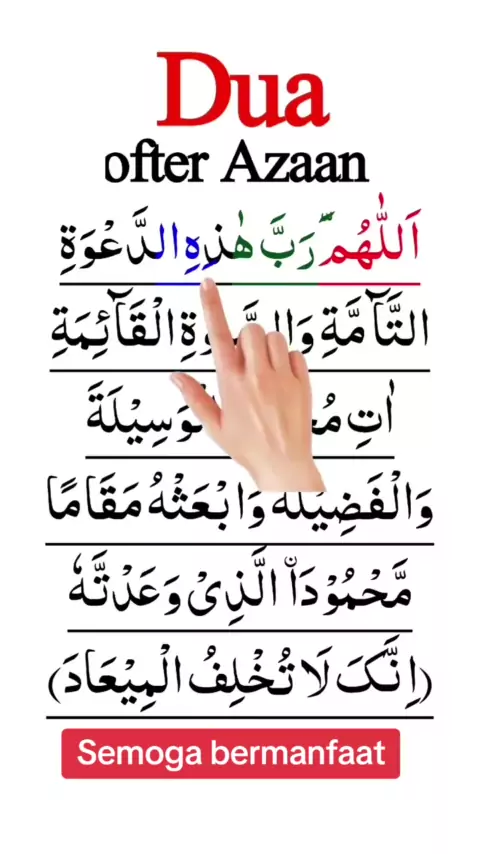 Dua
ofter Azaan
اَللّٰهُمَّ رَبَّ هٰذِهِ الدَّعْوَةِ
التَّآمَّةِ وَالصَّلٰوةِ الْقَآئِمَةِ
اٰتِ الْوَسِيْلَةَ
وَالْفَضِيْلَةَ وَابْعَثْهُ مَقَامًا
مَّحْمُوْدَاۨ الَّذِیْ وَعَدْتَّهٗ
(اِنَّکَ لَا تُخْلِفُ الْمِيْعَادَ)
Semoga bermanfaat